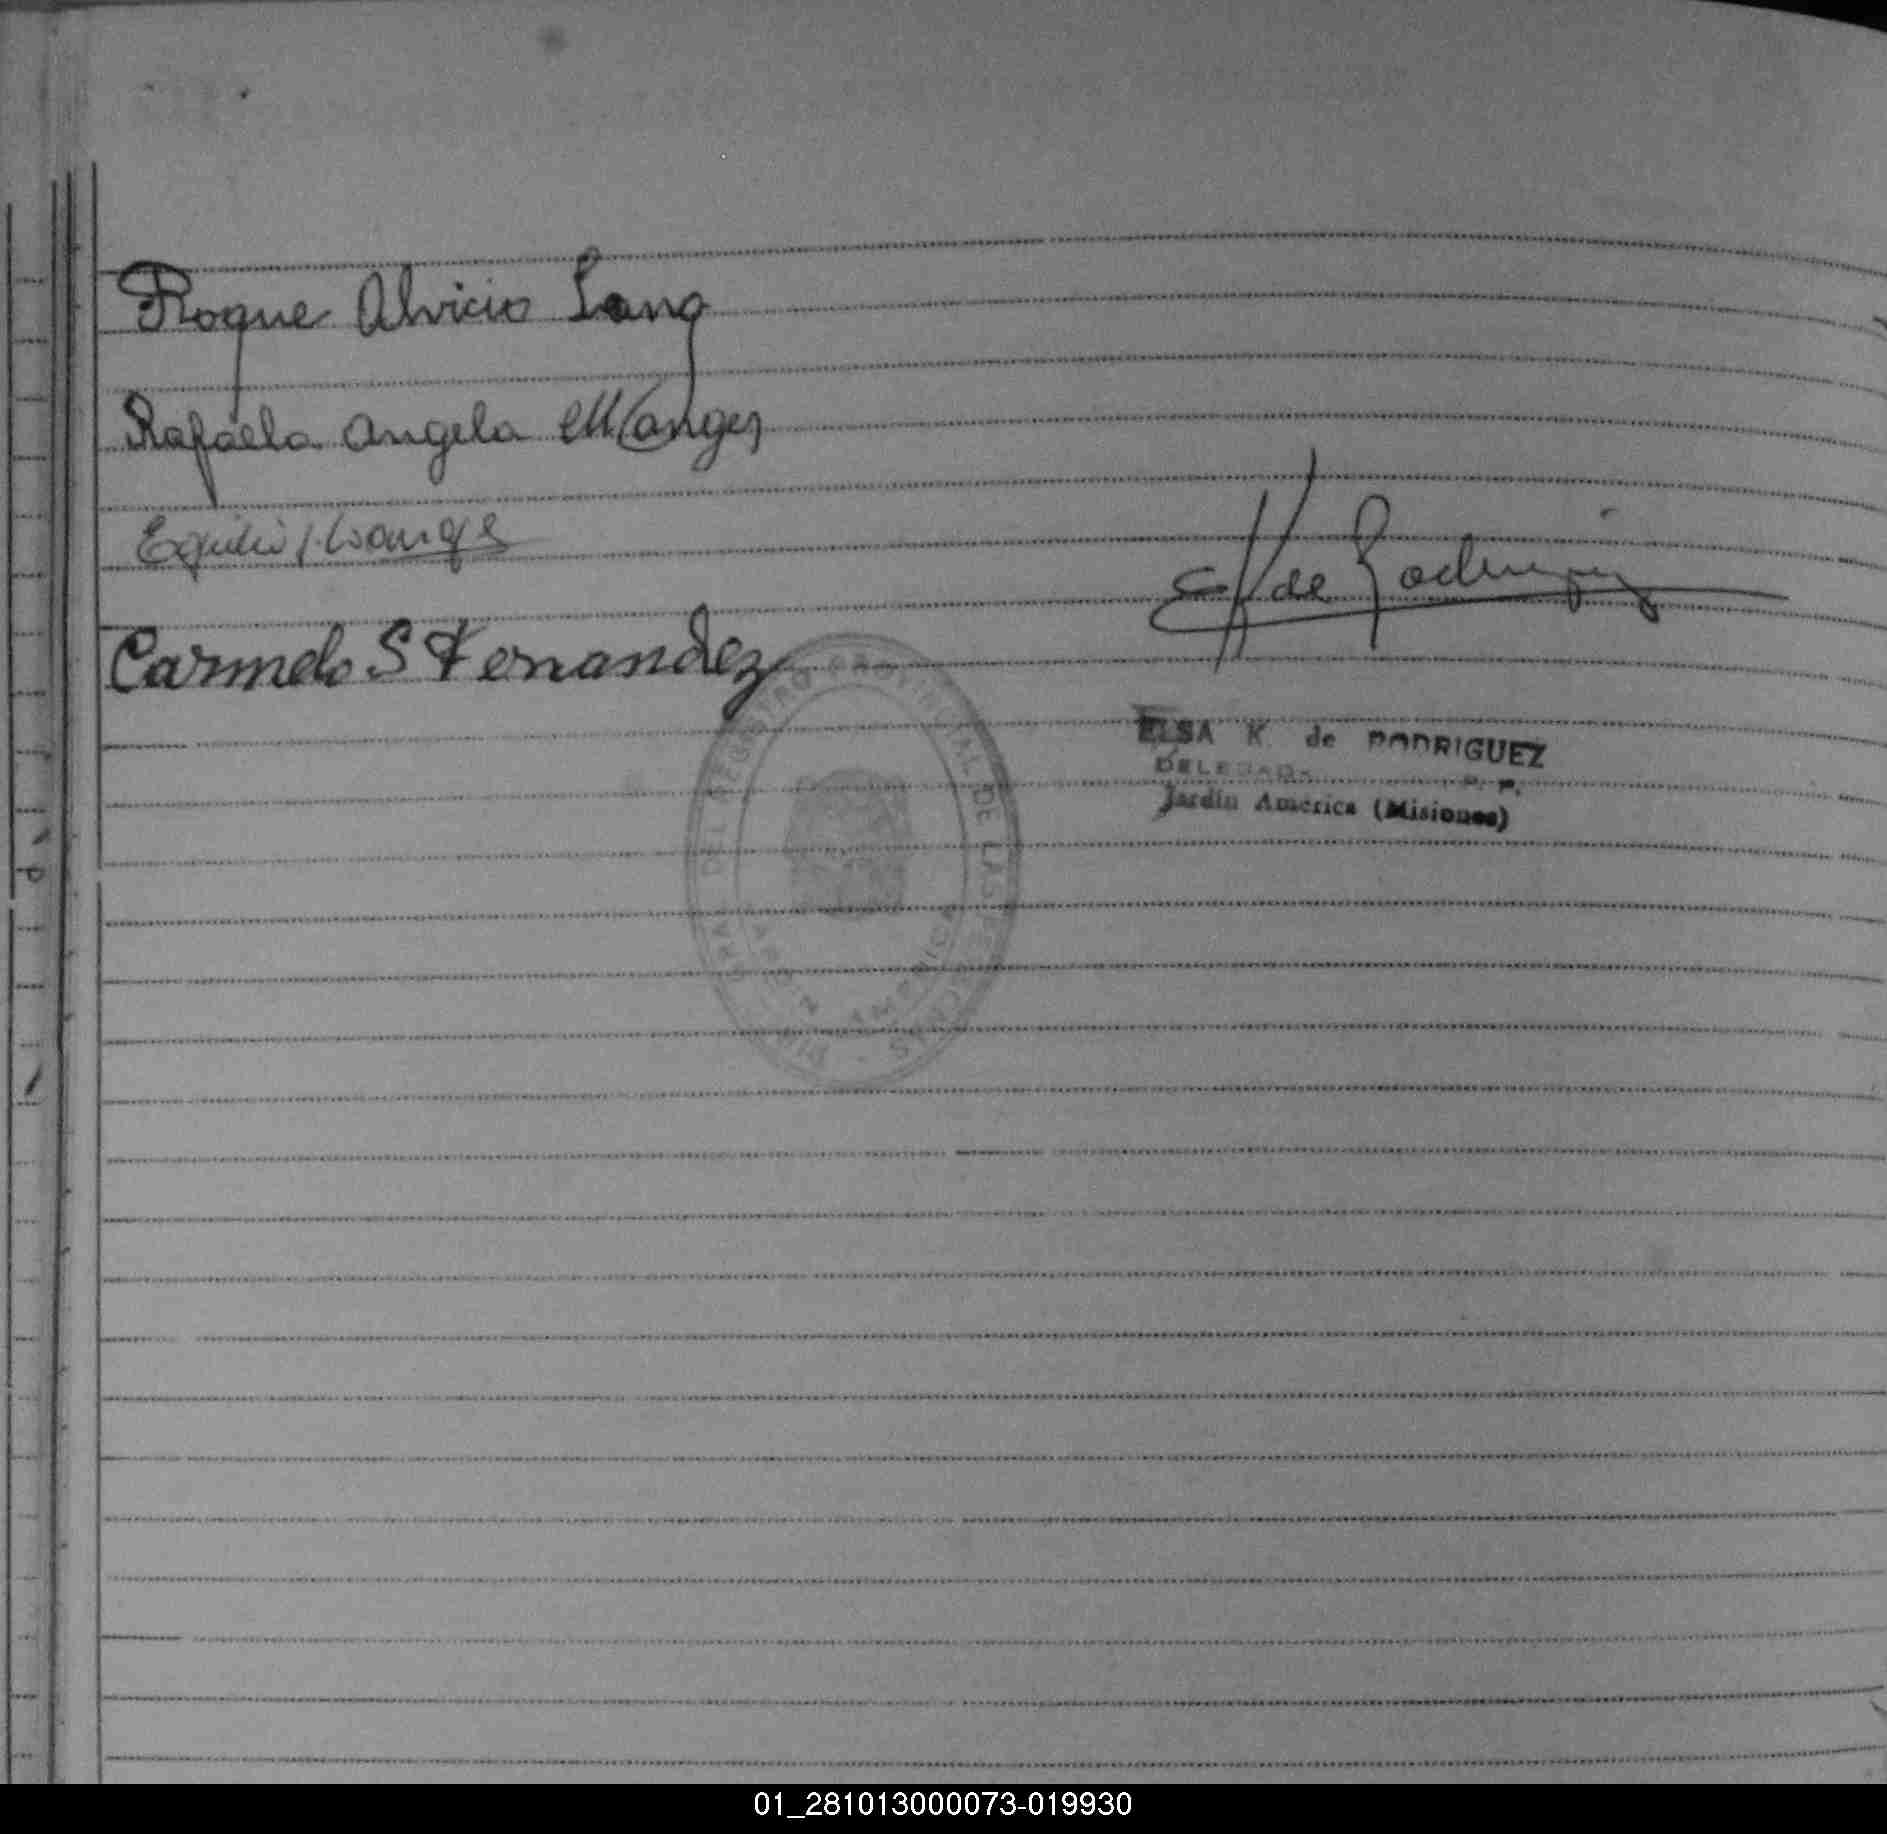 Roque Alvicio Lang
Rafaela Angela Manger
Carmelo S Fernandez
E K de Rodriguez
ELSA K de RODRIGUEZ
DELEGADA
Jardín América (Misiones)
DEL REGISTRO PROVINCIAL DE LAS PERSONAS
JARDIN AMERICA
01_281013000073-019930